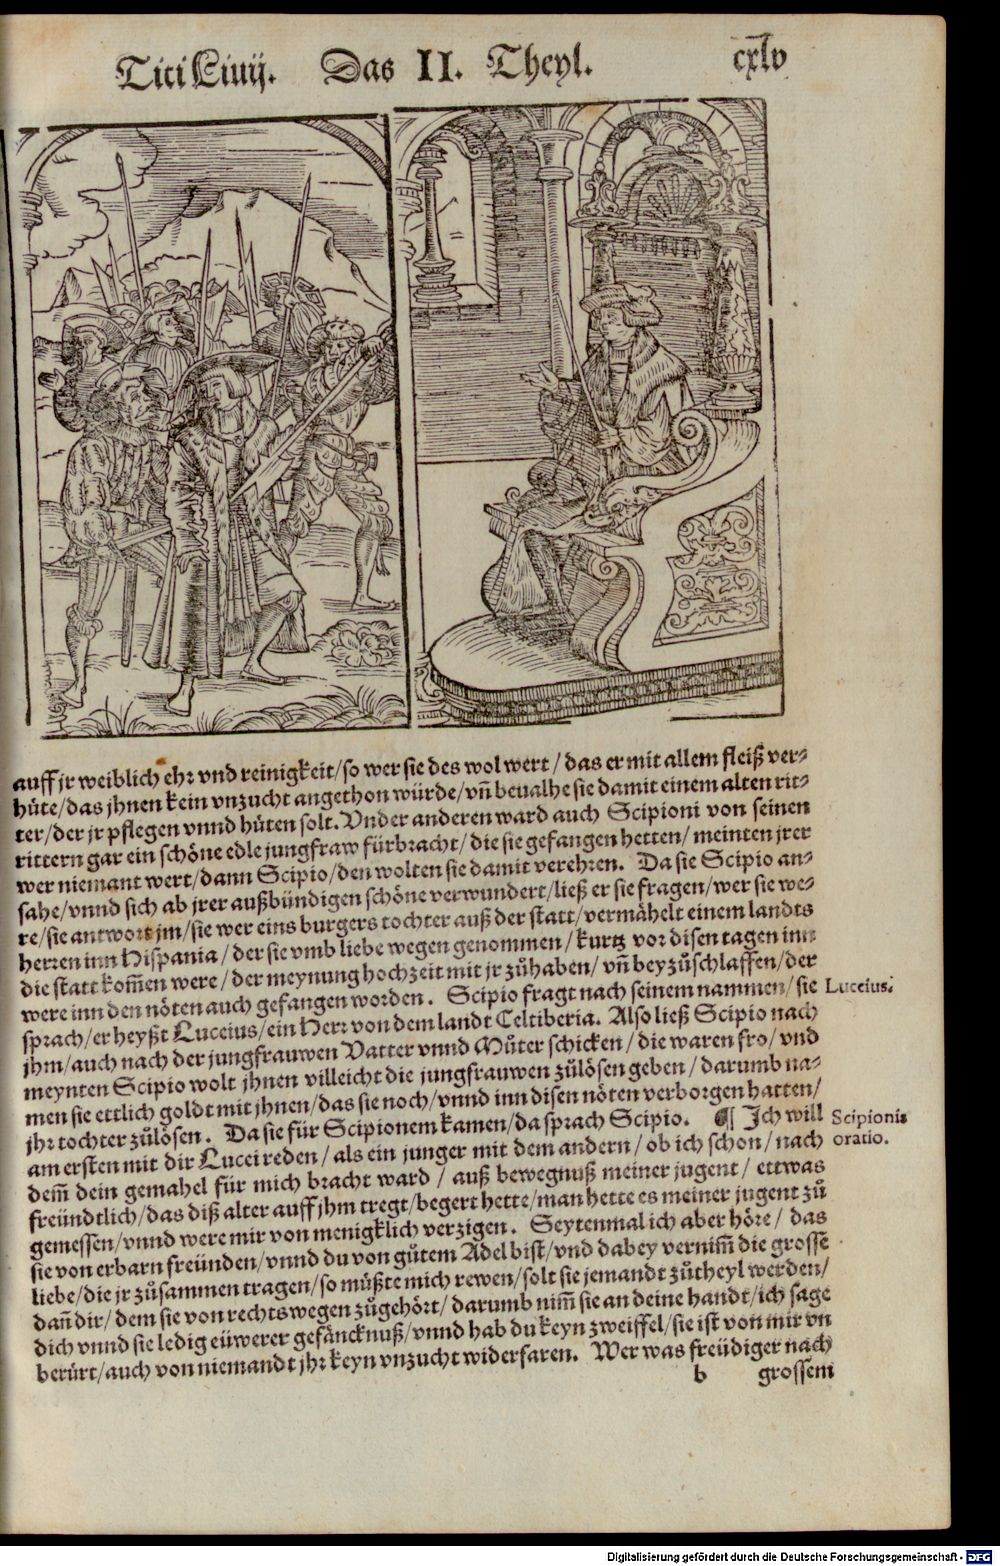 Titi Liuij. Das II. Theyl. cxlv
auff jr weiblich ehr vnd reinigkeit/so wer sie des wol wert/das er mit allem fleiß ver⸗
hüte/das jhnen kein vnzucht angethon würde/vñ beualhe sie damit einem alten rit⸗
ter/der jr pflegen vnnd hüten solt. Vnder anderen ward auch Scipioni von seinen
rittern gar ein schöne edle jungfraw fürbracht/die sie gefangen hetten/meinten jrer
wer niemant wert/dann Scipio/den wolten sie damit verehren. Da sie Scipio an⸗
sahe/vnnd sich ab jrer außbündigen schöne verwundert/ließ er sie fragen/wer sie we⸗
re/sie antwort jm/sie wer eins burgers tochter auß der statt/vermähelt einem landts
herren inn Hispania/der sie vmb liebe wegen genommen/kurtz vor disen tagen inn
die statt kom̃en were/der meynung hochzeit mit jr zůhaben/vñ beyzůschlaffen/der
were inn den nöten auch gefangen worden. Scipio fragt nach seinem nammen/sie
Luceius.
sprach/er heyßt Luceius/ein Herr von dem landt Celtiberia. Also ließ Scipio nach
jhm/auch nach der jungfrauwen Vatter vnnd Můter schicken/die waren fro/vnd
meynten Scipio wolt jhnen villeicht die jungfrauwen zůlösen geben/darumb na⸗
men sie ettlich goldt mit jhnen/das sie noch/vnnd inn disen nöten verborgen hatten/
jhr tochter zůlösen. Da sie für Scipionem kamen/da sprach Scipio. ¶ Ich will
Scipionis
oratio.
am ersten mit dir Lucei reden/als ein junger mit dem andern/ob ich schon/nach
dem̃ dein gemahel für mich bracht ward/auß bewegnuß meiner jugent/ettwas
freündtlich/das diß alter auff jhm tregt/begert hette/man hette es meiner jugent zů
gemessen/vnnd were mir von menigklich verzigen. Seytenmal ich aber höre/das
sie von erbarn freünden/vnnd du von gůtem Adel bist/vnd dabey vernim̃ die grosse
liebe/die jr zůsammen tragen/so müßte mich rewen/solt sie jemandt zůtheyl werden/
dañ dir/dem sie von rechts wegen zůgehört/darumb nim̃ sie an deine handt/ich sage
dich vnnd sie ledig eüwerer gefäncknuß/vnnd hab du keyn zweiffel/sie ist von mir vn
berürt/auch von niemandt jhr keyn vnzucht widerfaren. Wer was freüdiger nach
b grossem
Digitalisierung gefördert durch die Deutsche Forschungsgemeinschaft - DFG